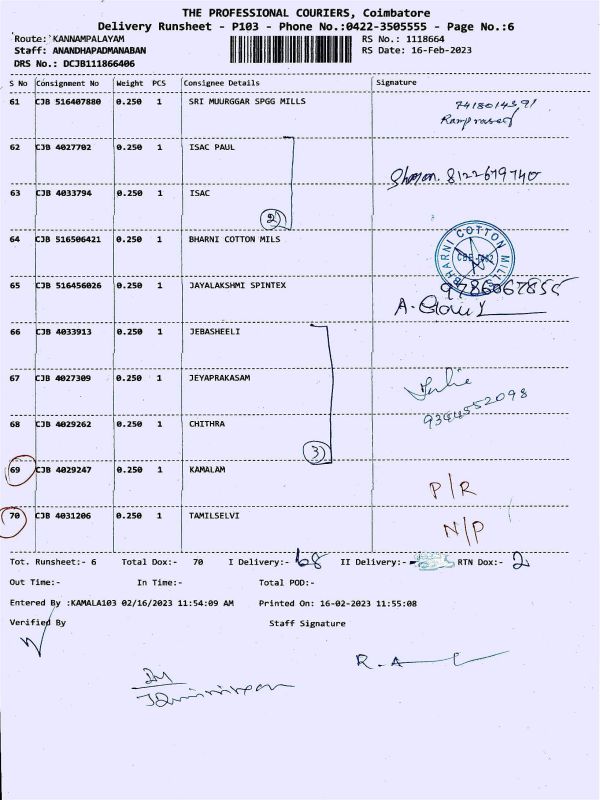 THE PROFESSIONAL COURIERS, Coimbatore
Delivery Runsheet - P103 - Phone No.:0422-3505555 - Page No.:6
Route: KANNAMPALAYAM RS No.: 1118664
Staff: ANANDHAPADMANABAN RS Date: 16-Feb-2023
DRS No.: DCJB111866406
S No Consignment No Weight PCS Consignee Details Signature
61 CJB 516407880 0.250 1 SRI MUURGGAR SPGG MILLS
62 CJB 4027702 0.250 1 ISAC PAUL
8122679740
63 CJB 4033794 0.250 1 ISAC
2
64 CJB 516506421 0.250 1 BHARNI COTTON MILS
BHARNI COTTON MILL
65 CJB 516456026 0.250 1 JAYALAKSHMI SPINTEX 9786067855
66 CJB 4033913 0.250 1 JEBASHEELI
67 CJB 4027309 0.250 1 JEYAPRAKASAM
68 CJB 4029262 0.250 1 CHITHRA
3
69 CJB 4029247 0.250 1 KAMALAM
P/R
70 CJB 4031206 0.250 1 TAMILSELVI
N/P
Tot. Runsheet:- 6 Total Dox:- 70 I Delivery:- 68 II Delivery:- RTN Dox:- 2
Out Time:- In Time:- Total POD:-
Entered By :KAMALA103 02/16/2023 11:54:09 AM Printed On: 16-02-2023 11:55:08
Verified By Staff Signature
R.A